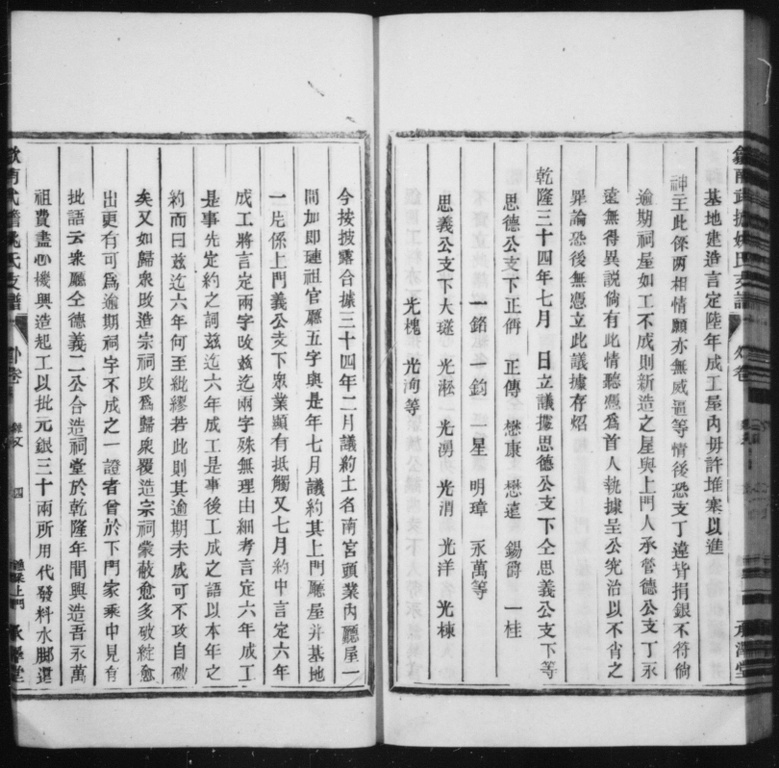 基地建造言定陸年成工屋內毋許堆寨以進
神主此係两相情願亦無威逼等情後恐支丁違背捐銀不符倘
逾期祠屋如工不成則新造之屋與上門人承管德公支丁永
遠無得異説倘有此情聽憑為首人執據呈公究治以不肖之
罪論恐後無憑立此議據存炤
乾隆三十四年七月 日立議據思德公支下仝思義公支下等
思德公支下正 正傳 懋康 懋遠 錫 一桂
一鉊 一鈞 一星 明璋 永萬等
思義公支下大 光淞 光湧 光消 光洋 光棟
光槐 光洵等
今按披露合據三十四年二月議約土名南宮頭業內廳屋一
間加即璉祖官廳五字與是年七月議約其上門廳屋并基地
一片係上門義公支下眾業顯有抵觸又七月約中言定六年
成工將言定兩字改兹迄兩字殊無理由細考言定六年成工
是事先定約之詞兹迄六年成工是事後工成之語以本年之
約而曰兹迄六年何至紕繆若此則其逾期未成可不攻自破
矣又如歸衆改造宗祠改為歸衆覆造宗祠蒙蔽愈多破綻愈
出更有可為逾期祠字不成之一證者曾於下門家乘中見有
批語云衆廳仝德義二公合造祠堂於乾隆年間興造吾永萬
祖費盡心機興造起工以批元銀三十兩所用代發料水腳還
氏支譜 外卷 四 上門 承澤堂